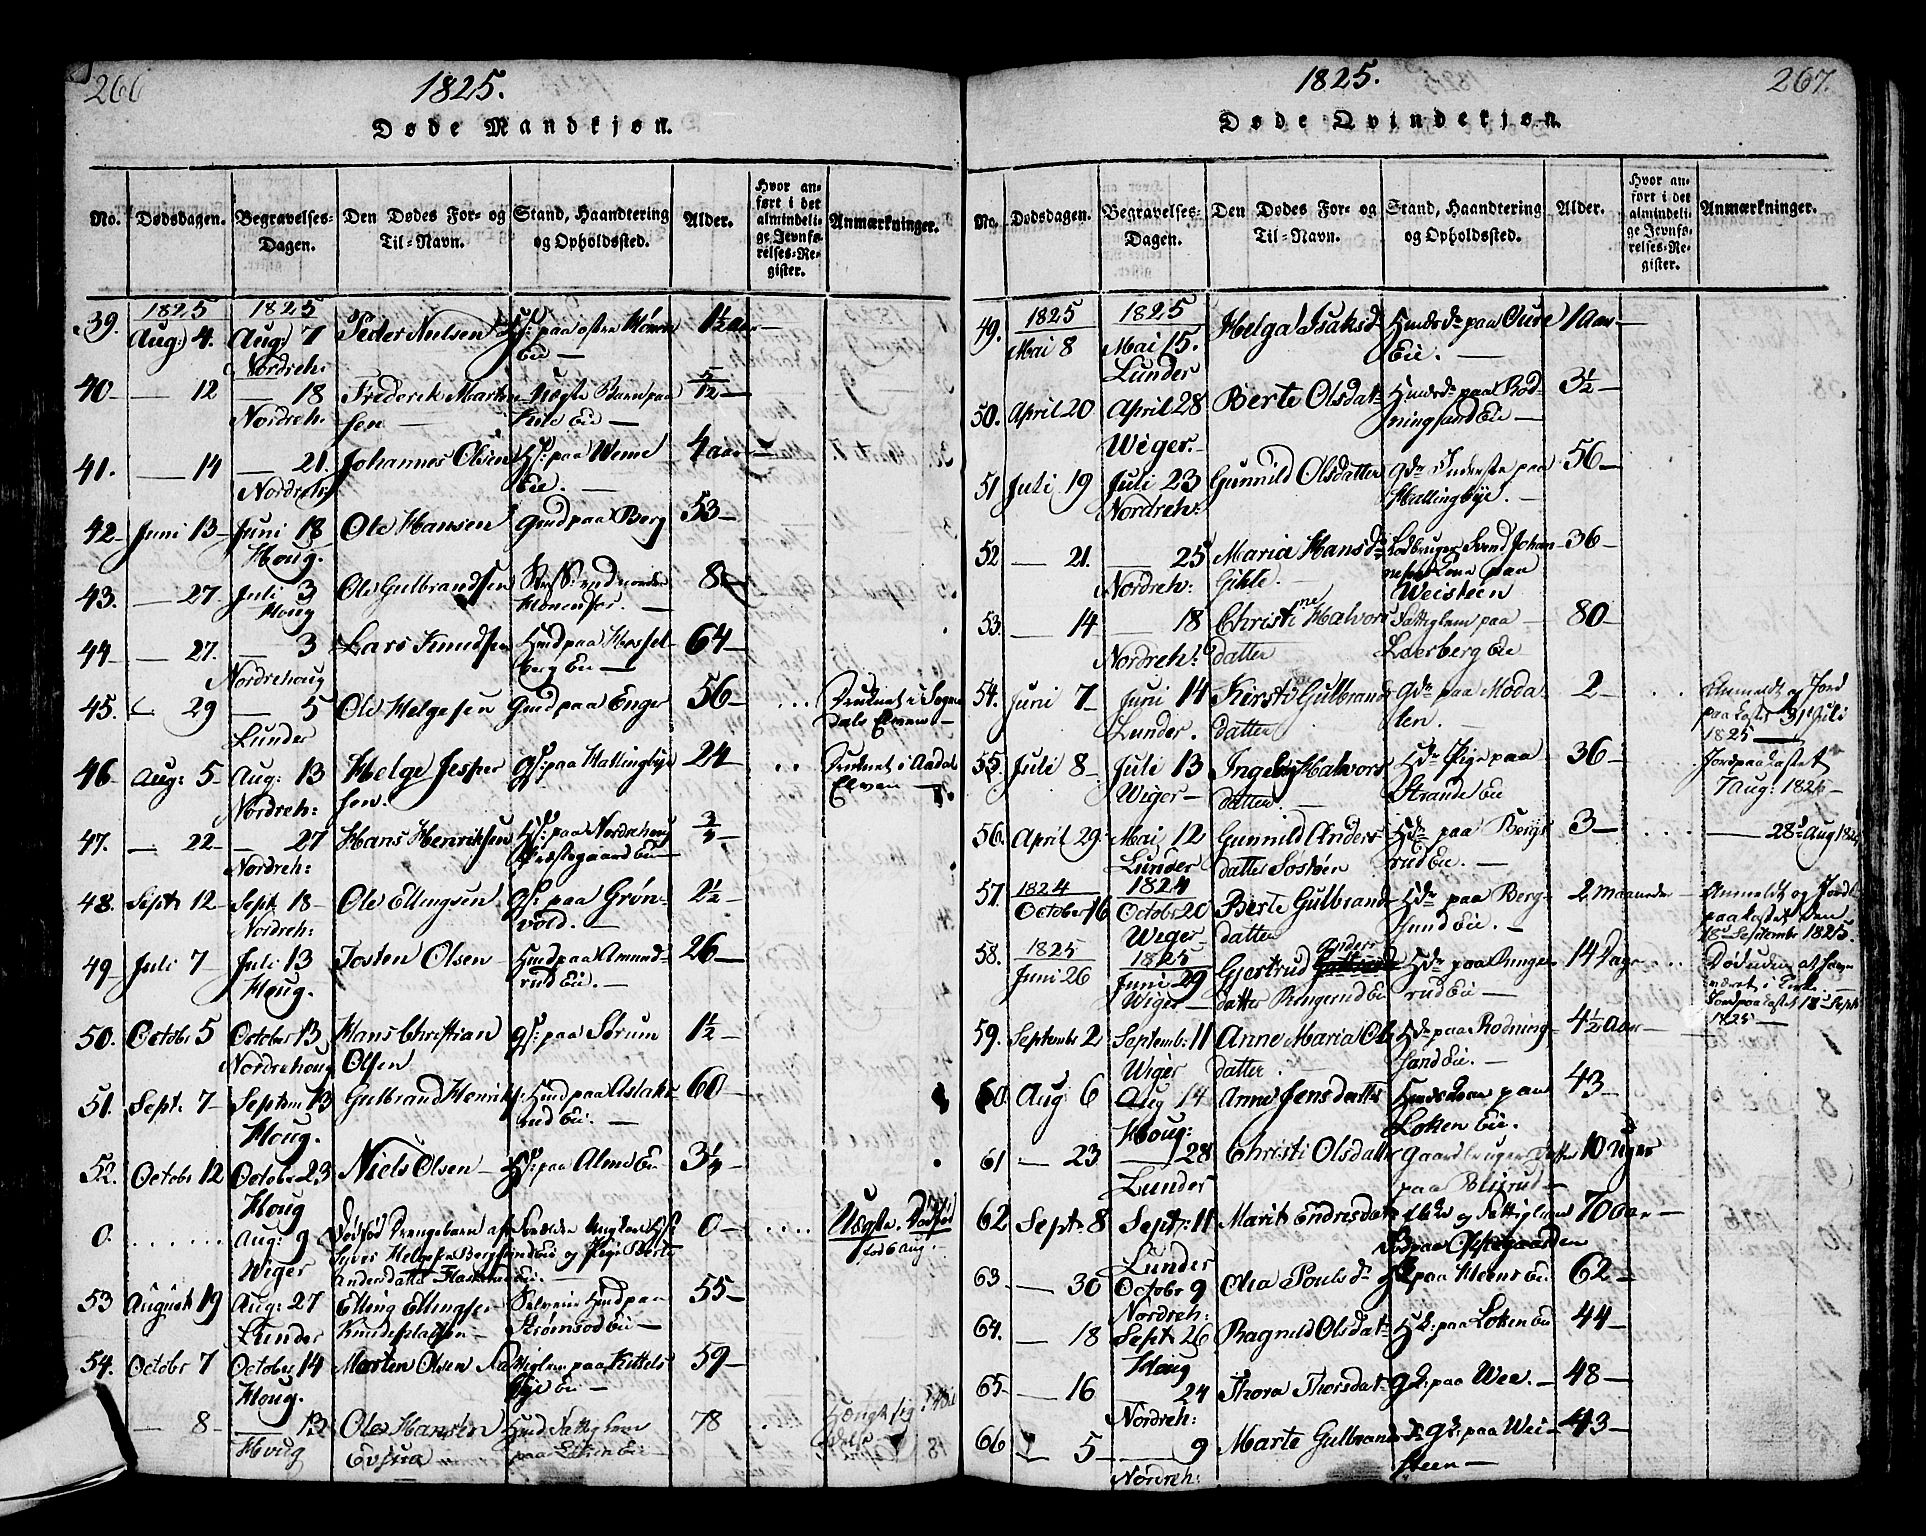 266
1825.
Døde Mandkjøn.
No. Dødsdagen. Begravelses-Dagen. Den Dødes For- og Til-Navn. Stand, Haandtering og Opholdssted. Alder. Hvor anført i det almindelige Jevnførelses-Register. Anmærkninger.
39. 1825 Aug: 4. 1825 Aug: 7 Nordreh: Peder Nielsen paa Eie — 1½ aar
40 — 12 — 18 Nordreh: Frederik Martinsen — Uægte Barn paa Eie — 5/12 —
41. — 14 — 21. Nordreh: Johannes Olsen paa Weme Eie. — 4 aar —
42 Juni 13 Juni 18 Houg. Ole Hansen Gmd paa Berg 53 —
43. — 27 Juli 3 Houg Ole Gulbrandsen Honenfos. — 8 —
44 — 27. — 3 Nordrehoug Lars Knudsen Hmd paa Hasselberg Eie — 64 —
45. — 29 — 5 Lunder Ole Helgesen Gmd paa Enger 56 — . . . Druknet i Sognedals Elven —
46 Aug: 5 Aug: 13 Nordreh: Helge Jespersen. GS: paa Hallingbye 24 — . . Druknet i Aadals Elven —
47. — 22 — — 27 Nordreh: Hans Henriksen HS: paa Nordrehoug Præstegaard Eie —
48. Septr 12 Septr 18 — Nordreh: Ole Ellingsen GS: paa Grønvold. — 2½ —
49 Juli 7 Juli 13 Houg. Josten Olsen Hmd paa Amundrud Eie. — 26 —
50. Octobr 5 October 13 Nordrehoug Hans Christian Olsen GS: paa Sørum 1½ —
51. Septr 7 Septem 13 Houg. Gulbrand Henriks: Hmd paa Aslaksrud Eie. — 60 —
52. Octobr 12 Octobr 23 Houg Niels Olsen — HS: paa Alme Eie 3¼ —
0. . . . . . . Aug: 9 Wiger Dødfød Drengebarn af Helgesen Bergsund Eie og Pige Berte Andersdatter Eie. — 0 — . . . . Uægte. Dødfød fød 6 Aug.
53 August 19 Aug: 27 Lunder Elling Ellingsen Hmd paa Strømsod Eie — 55 —
54. Octobr 7 October 14 Houg. Morten Olsen Fattiglem paa Kittelsbye Eie — 59 —
— 8 — 13 Houg Ole Hansen Hmd Fattiglem paa Eie — 78
267.
1825.
Døde Qvindekjøn.
No. Dødsdagen. Begravelses-Dagen. Den Dødes For- og Til-Navn. Stand, Haandtering og Opholdssted. Alder. Hvor anført i det almindelige Jevnførelses-Register. Anmærkninger.
49. 1825 Mai 8 1825 Mai 15. Lunder Helga Isaksd Hmds Dr paa Oure Eie. — 1 aar —
50. April 20 April 28 Wiger. Berte Olsdatr Hmds Dr paa Rodningsand Eie — 3½ —
51 Juli 19 Juli 23 Nordreh: Gunnild Olsdatter Inderste paa Hallingbye. — 56 —
52 — 21. — 25 Nordreh: Maria Hansdr Gihle. — Lodbruger Svend Johannesens Kone paa Weisteen 36 —
53. — 14 — 18 Nordreh: Christine Halvorsdatter Fattiglem paa Eie 80 —
54. Juni 7 Juni 14 Lunder. Kirsti Gulbrandsdatter Gdr paa Modalen. — 2 — . . . Anmeldt og Jord paakastet 31te Juli 1825 —
55 Juli 8 — Juli 13 Wiger — Ingebor Halvorsdatter. — Pige paa Strande Eie 36 — . . . Jordpaakastet 7 Aug: 1825 —
56. April 29. Mai 12 Lunder Gunnild Andersdatter HDr paa Bergsrud Eie. — 3 — . . . — 28de Aug 1825
57. 1824 October 16 1824 Octobr 20 Wiger — Berte Gulbrandsdatter HDr paa Bergsund Eie. — 2 maaneder Anmeldt og Jordpaakastet den 18de Septembr 1825.
58. 1825 Juni 26 1825 Juni 29 Wiger — Gjertrud Andersdatter Ringerud Eie HDr paa Ringerud Eie — 14 Dage . . . Død uden at Jordpaakastet 18de Septr 1825 —
59. Septembr 2 Septemb: 11 Wiger Anne Maria Olsdatter. — HDr paa Rodningsand Eie. — 4½ Aar —
60. Aug: 6 Aug 14 Houg: Anne Jensdatter Hmds Kone paa Loken Eie. 43 —
61 — 23 — 28 Lunder Christi Olsdatter Gaardbruger Datter paa Bujrud — 10 Uger
62 Septr 8 Septr: 11 Lunder Marit Endresdatr Enke og Fattiglem paa 70 Aar —
63. — 30 Octobr 9 Nordreh: Olia Poulsdr paa Eie 62 —
64. — 18 Septr 26 Houg Ragnild Olsdatr HK: paa Loken Eie 44 —
65. — 16 — 24 Nordreh: Thora Thorsdatr GK: paa Wee. — 48 —
66 — 5 — 9 Nordreh: Marte Gulbrandsdr GK: paa Weisteen — 43 —